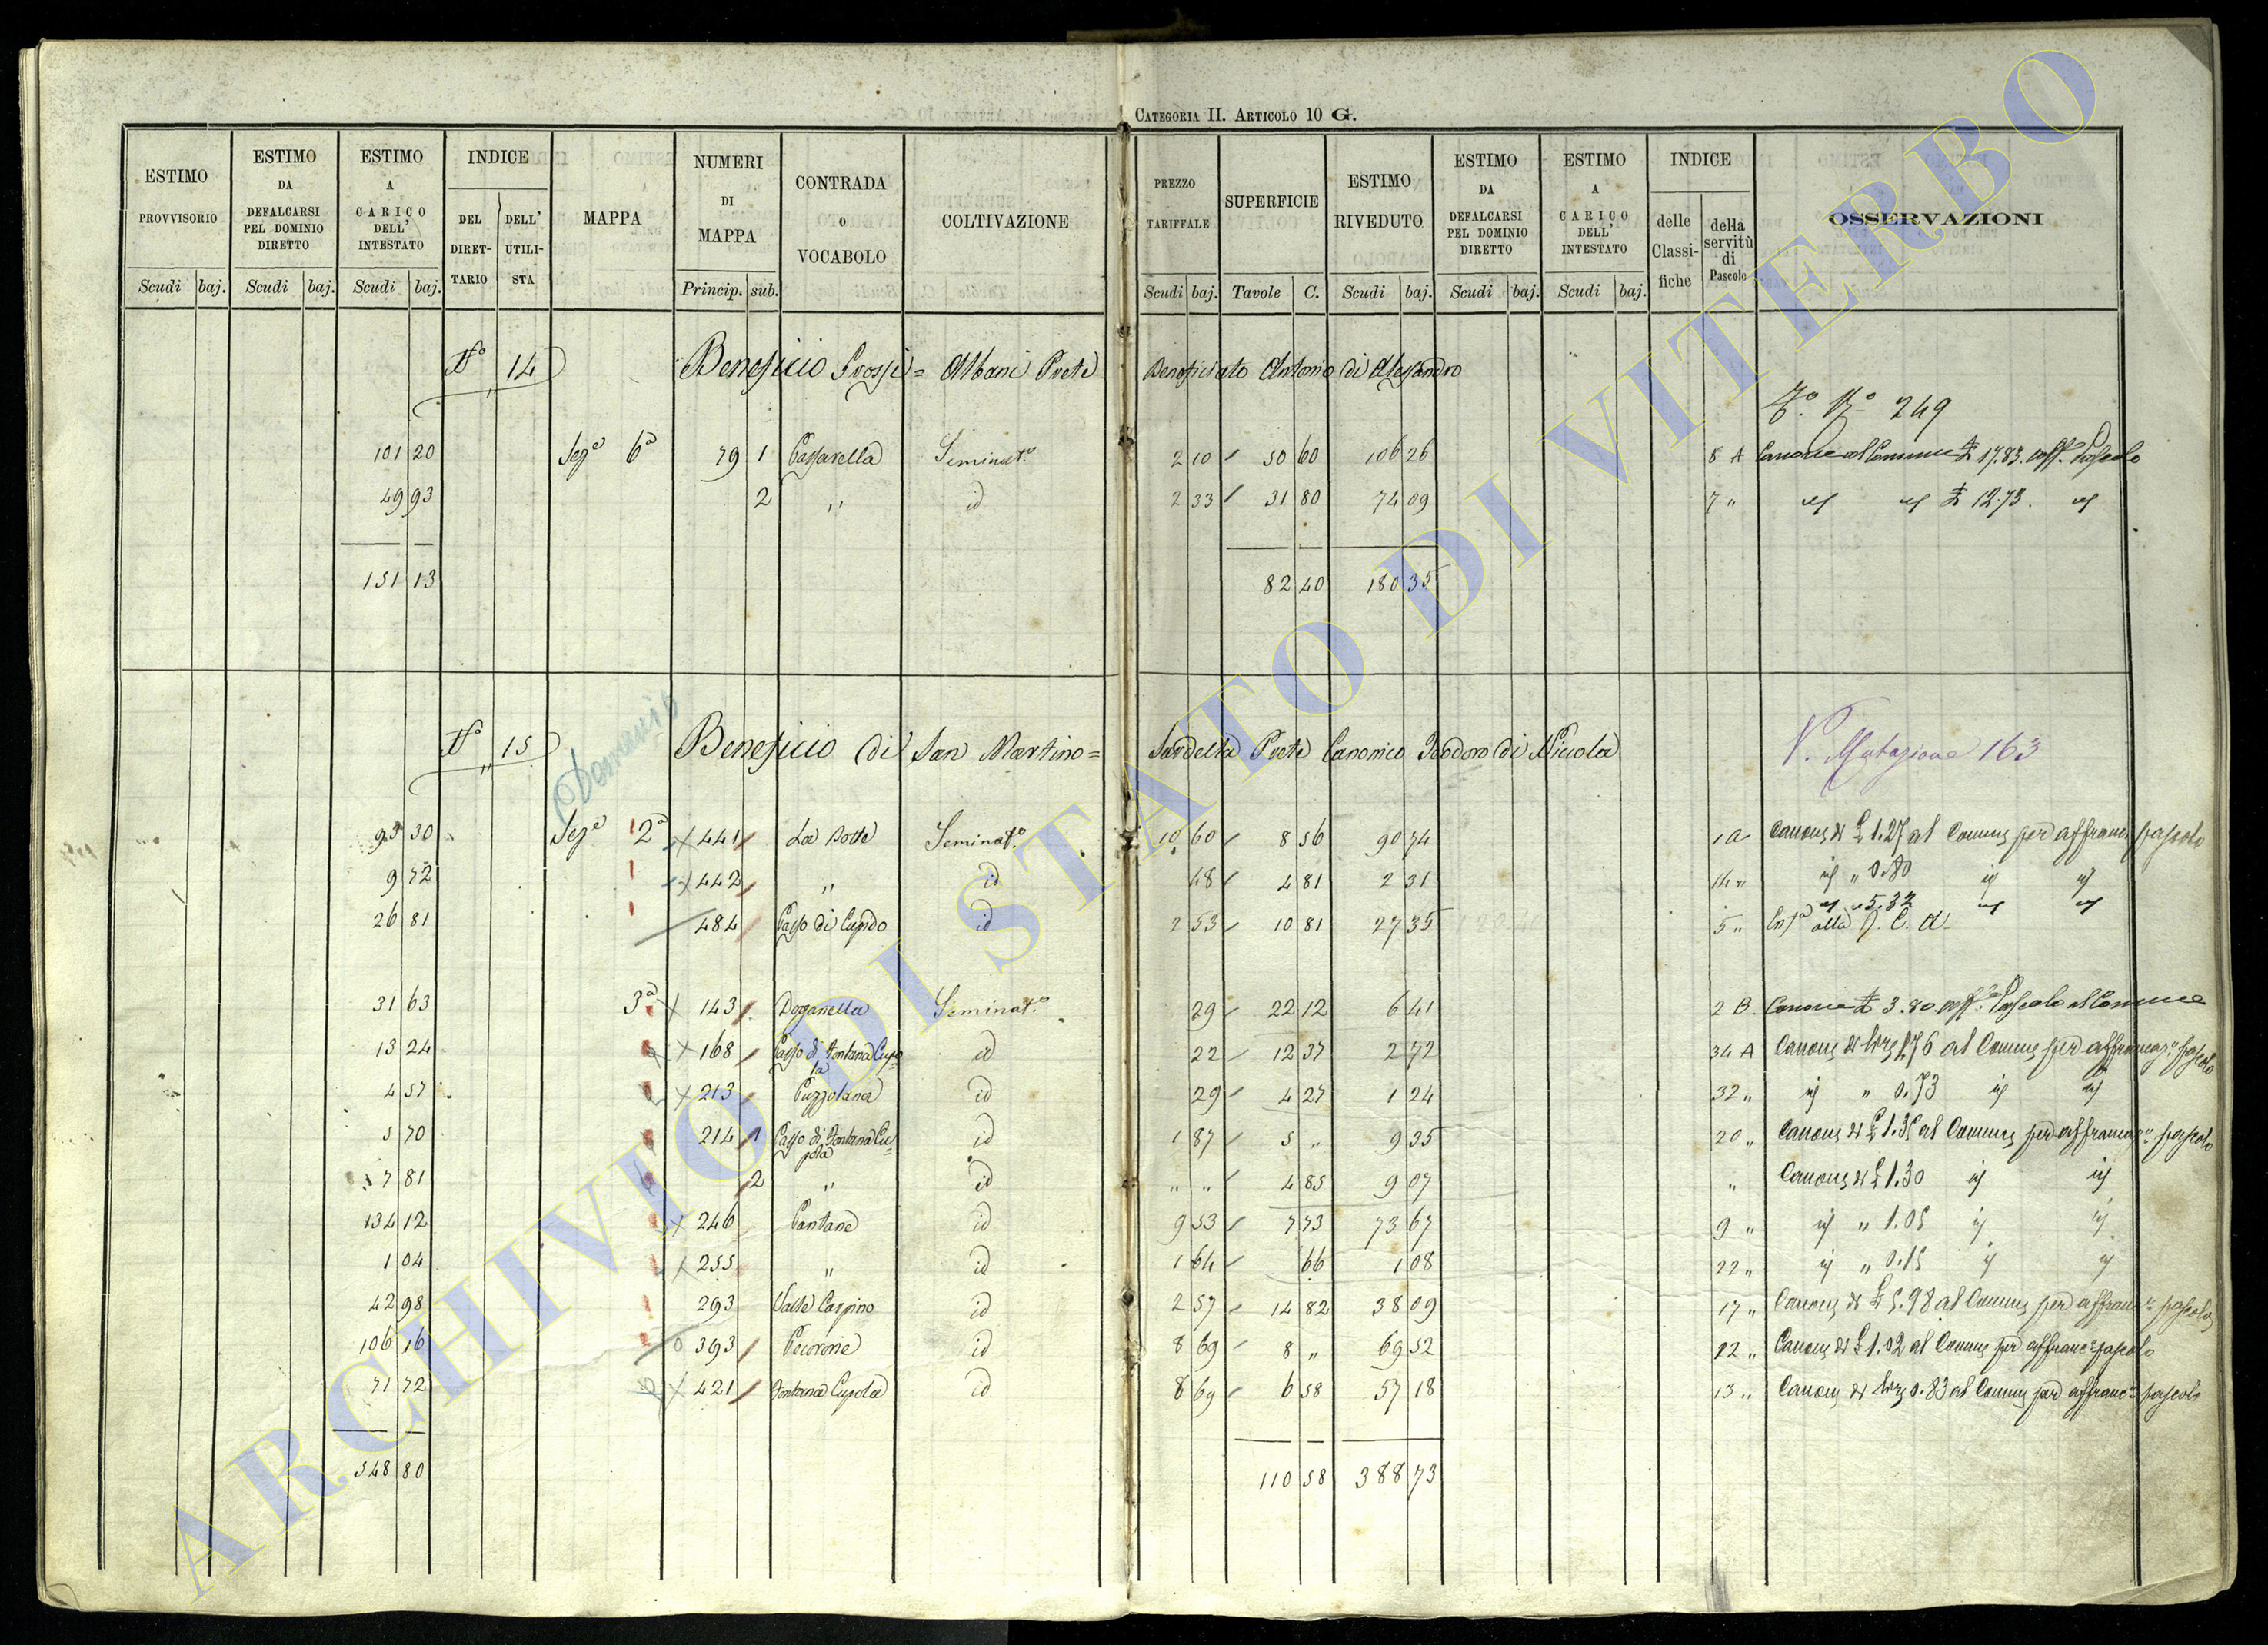 CATEGORIA II. ARTICOLO 10 G.
ESTIMO PROVVISORIO Scudi baj.
ESTIMO DA DEFALCARSI PEL DOMINIO DIRETTO Scudi baj.
ESTIMO A CARICO DELL' INTESTATO Scudi baj.
INDICE DEL DIRETTARIO DELL' UTILISTA
MAPPA
NUMERI DI MAPPA Princip. sub.
CONTRADA o VOCABOLO
COLTIVAZIONE
PREZZO TARIFFALE Scudi baj.
SUPERFICIE Tavole C.
ESTIMO RIVEDUTO Scudi baj.
ESTIMO DA DEFALCARSI PEL DOMINIO DIRETTO Scudi baj.
ESTIMO A CARICO DELL' INTESTATO Scudi baj.
INDICE delle Classifiche della servitù di Pascolo
OSSERVAZIONI
No 14 Beneficio Grossi = Albani Prete Beneficiato Antonio di Alessandro
No 249
101 20 Seze 6a 79 1 Seminato 2 10 50 60 106 26 8 A Canone al Comune £ 17.83. aff. Pascolo
49 93 2 " id 2 33 31 80 74 09 7 " id id £ 12.73. id
151 13 82 40 180 35
No 15 Beneficio di San Martino = Sardella Prete Canonico Teodoro di Nicola
Demanio
V. Mutazione 163
93 30 Seze 2a 441 La Botte Seminato 10 60 8 56 90 74 1 a Canone di £ 1.27 al Comune per affranc pascolo
9 72 442 " id 48 4 81 2 31 14 " id " 0.80 id id
id " 5.32 id id
26 81 484 Passo di Cupido id 2 53 10 81 27 35 5 " alla
31 63 3a 143 Doganella Seminato 29 22 12 6 41 2 B. Canone £ 3.80 aff. Pascolo al Comune
13 24 168 Passo di Fontana Cupola id 22 12 37 2 72 34 A Canone di lire 1.76 al Comune per affrancaz pascolo
4 57 213 Puzzolana id 29 4 27 1 24 32 " id " 0.73 id id
5 70 214 1 Passo di Fontana Cupola id 1 87 5 " 9 35 20 " Canone di £ 1.35 al Comune per affrancaz pascolo
7 81 2 " id " " 4 85 9 07 " Canone di £ 1.30 id id
134 12 246 Pantane id 9 53 7 73 73 67 9 " id " 1.05 id id
1 04 255 " id 1 64 66 1 08 22 " id " 0.15 id id
42 98 293 Valle Carpino id 2 57 14 82 38 09 17 " Canone di £ 5.98 al Comune per affranc pascolo
106 16 393 Pecorone id 8 69 8 " 69 52 12 " Canone di £ 1.02 al Comune per affranc pascolo
71 72 421 Fontana Cupola id 8 69 6 58 57 18 13 " Canone di lire 0.83 al Comune per affranc pascolo
548 80 110 58 388 73
ARCHIVIO DI STATO DI VITERBO